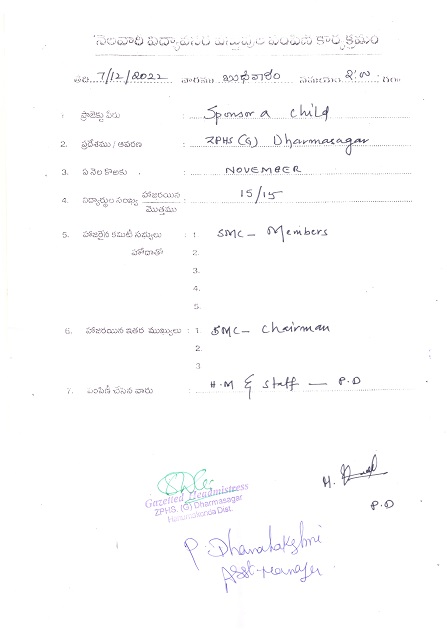 నెలవారి విద్యావసర వస్తువుల పంపిణి కార్యక్రమం
తేది 7/12/2022 వారము బుధవారం సమయం 2:00 గం
1. ప్రాజెక్టు పేరు : Sponsor a child
2. ప్రదేశము / ఆవరణ : ZPHS (G) Dharmasagar
3. ఏ నెల కొఱకు : NOVEMBER
4. విద్యార్థుల సంఖ్య హాజరయిన / మొత్తము : 15/15
5. హాజరైన కమిటీ సభ్యులు : 1 SMC - Members
హోదాతో 2.
3.
4.
5.
6. హాజరయిన ఇతర ముఖ్యులు : 1. SMC - Chairman
2.
3
7. పంపిణి చేసిన వారు : H.M & staff - P.D
Gazetted Headmistress
ZPHS. (G) Dharmasagar
Hanumakonda Dist.
P.D
P. Dhanalakshmi
Asst-manager